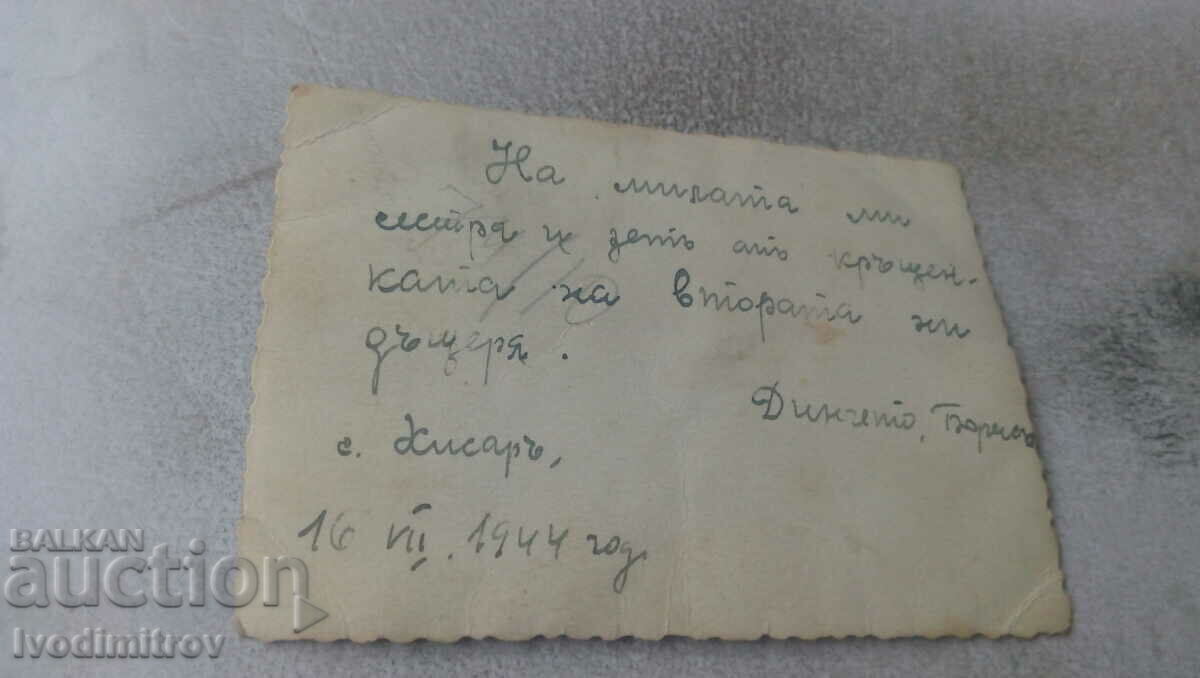 На милата ми
сестра и зетъ отъ кръщен-
ката на втората ни
дъщеря.
Динчето, Борисъ
с. Хисаръ,
16 VII. 1944 год.
BALKAN
auction
Ivodimitrov